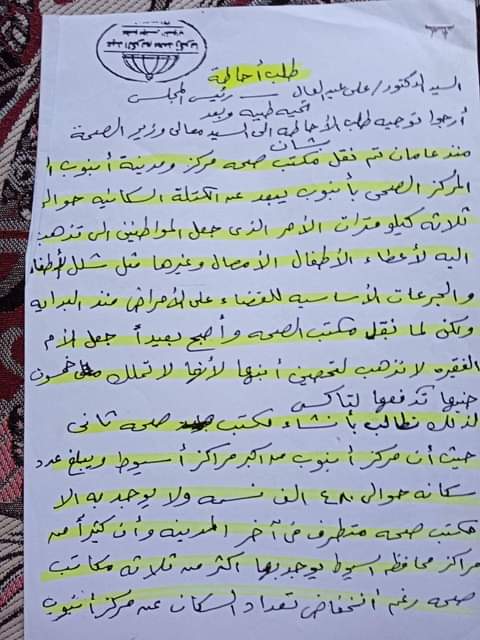 طلب أحاطة
السيد الدكتور/ على عبد العال - رئيس المجلس
تحيه طيبه وبعد
أرجوا توجيه طلب الأحاطه الى السيد معالى وزير الصحة
بشأن
منذ عامان تم نقل مكتب صحه مركز ومدينة أبنوب الى
المركز الصحى بأبنوب يبعد عن الكتلة السكانيه حوالى
ثلاثه كيلو مترات الأمر الذى جعل المواطنين التى تذهب
اليه لأعطاء الأطفال الأمصال وغيرها مثل شلل الأطفال
والجرعات الأساسيه للقضاء على الأمراض منذ البدايه
ولكن لما نقل مكتب الصحه وأصبح بعيداً جعل الأم
الفقيره لا تذهب لتحصين أبنها لأنها لا تملك خمسون
جنيها تدفعها لتاكس
لذلك نطالب بأنشاء مكتب صحه ثانى
حيث أن مركز أبنوب من اكبر مراكز أسيوط ويبلغ عدد
سكانه حوالى ٤٨٠ الف نسمه ولا يوجد به الا
مكتب صحه متطرف فى آخر المدينه وأن كثيراً من
مراكز محافظه اسيوط يوجد بها اكثر من ثلاثه مكاتب
صحه رغم أنخفاض تعداد السكان عن مركز أبنوب